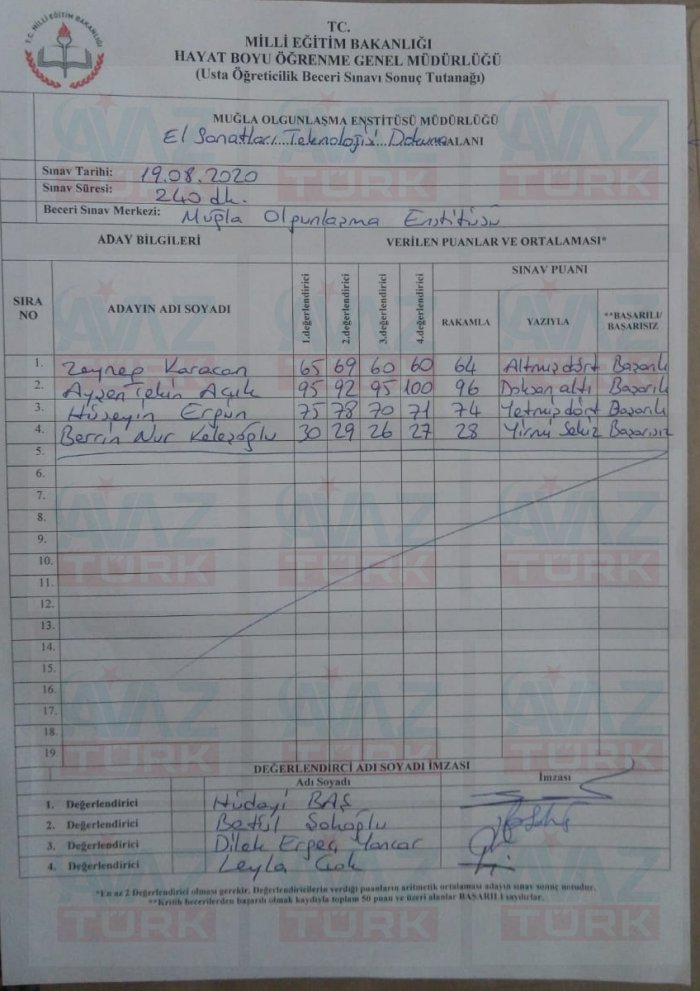 T.C. MİLLİ EĞİTİM BAKANLIĞI
TC.
MİLLİ EĞİTİM BAKANLIĞI
HAYAT BOYU ÖĞRENME GENEL MÜDÜRLÜĞÜ
(Usta Öğreticilik Beceri Sınavı Sonuç Tutanağı)
MUĞLA OLGUNLAŞMA ENSTİTÜSÜ MÜDÜRLÜĞÜ
El Sanatları Teknolojisi Dokuma ALANI
Sınav Tarihi: 19.08.2020
Sınav Süresi: 240 dk.
Beceri Sınav Merkezi: Muğla Olgunlaşma Enstitüsü
ADAY BİLGİLERİ VERİLEN PUANLAR VE ORTALAMASI*
SIRA NO ADAYIN ADI SOYADI 1.değerlendirici 2.değerlendirici 3.değerlendirici 4.değerlendirici SINAV PUANI
RAKAMLA YAZIYLA **BAŞARILI/ BAŞARISIZ
1. Zeynep Karacan 65 69 60 60 64 Altmışdört Başarılı
2. Ayşen Tekin Açık 95 92 95 100 96 Doksan altı Başarılı
3. Hüseyin Ergün 75 78 70 71 74 Yetmişdört Başarılı
4. Berrin Nur Keleşoğlu 30 29 26 27 28 Yirmi Sekiz Başarısız
5.
6.
7.
8.
9.
10.
11.
12.
13.
14.
15.
16.
17.
18.
19
DEĞERLENDİRCİ ADI SOYADI İMZASI
Adı Soyadı İmzası
1. Değerlendirici Hüdayi BAŞ
2. Değerlendirici Betül
3. Değerlendirici Dilek Ergeç
4. Değerlendirici Leyla
*En az 2 Değerlendirici olması gerekir. Değerlendiricilerin verdiği puanların aritmetik ortalaması adayın sınav sonuç notudur.
**Kritik becerilerden başarılı olmak kaydıyla toplam 50 puan ve üzeri alanlar BAŞARILI sayılırlar.
AVAZ
TÜRK